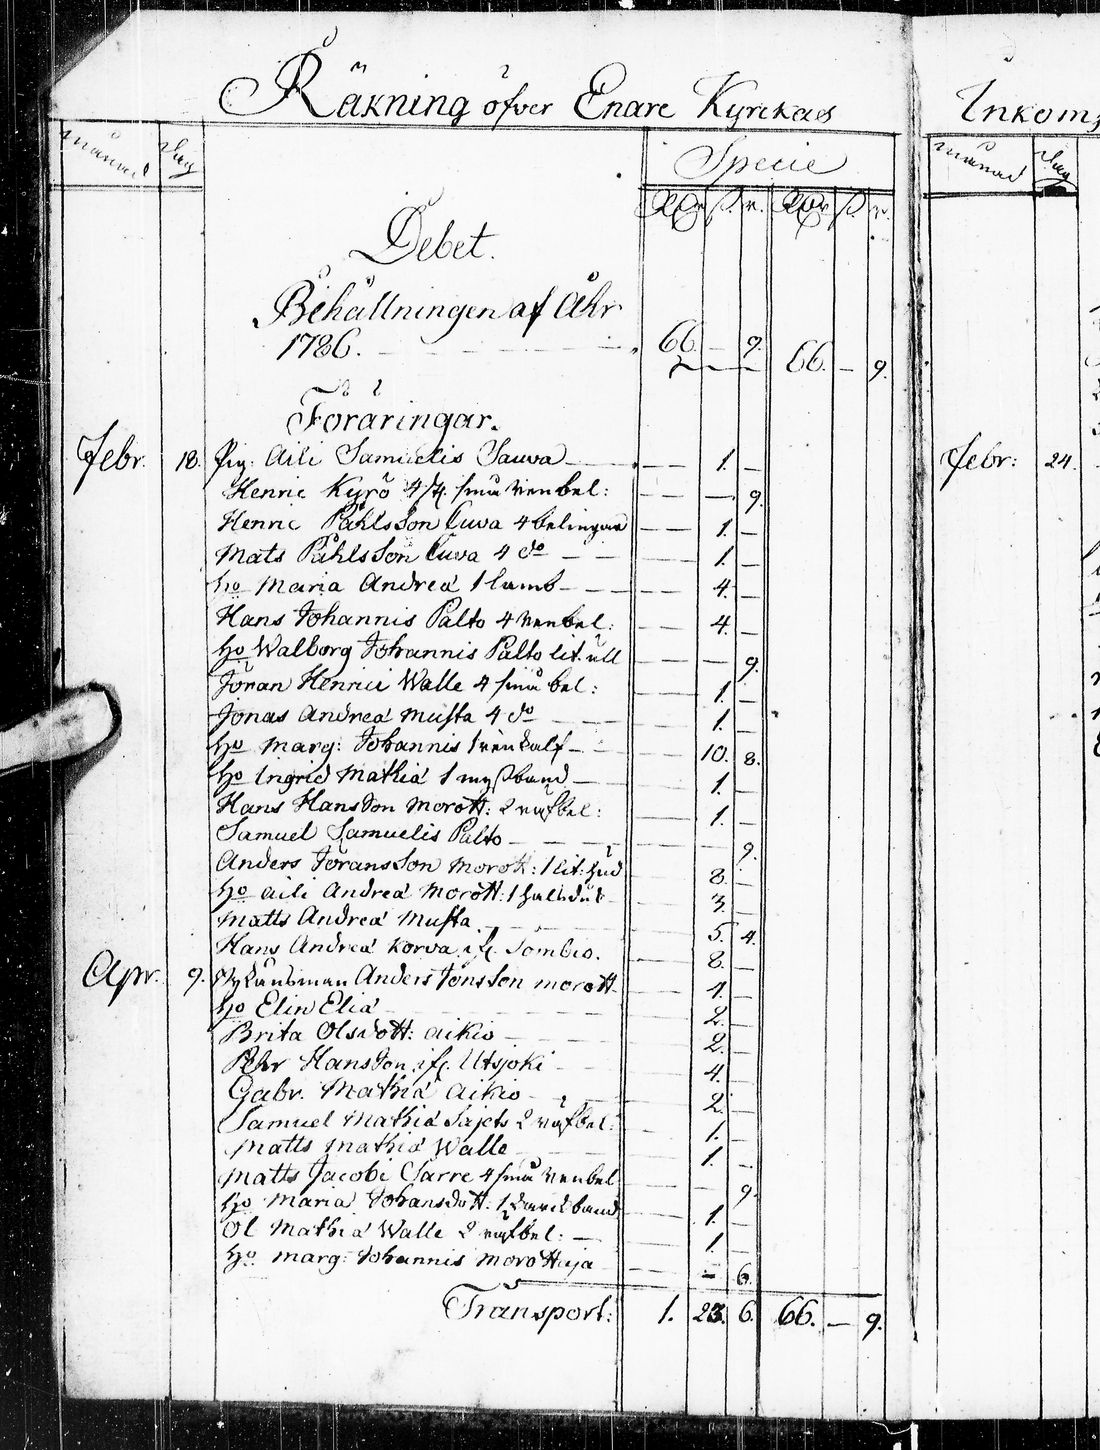 Räkning öfver Enare Kyrckas
Månad Dag Specie
Rdr ß. r. Rdr ß r.
Debet.
Behållningen af Åhr
1786. 66. — 9. 66. — 9.
Föräringar.
Febr. 18. Pig: Aili Samuelis Sauva — — 1. —
Henric Kyrö 4 små renbel: — — 9.
Henric Påhlsson Cuva 4 belingar — 1. —
Mats Påhlsson Cuva 4 do — 1. —
Ho Maria Andreæ 1 lamb — 4. —
Hans Johannis Palto 4 renbel: — 4. —
Ho Walborg Johannis Palto lit. ull — — 9.
Jöran Henrici Walle 4 små bel: — 1. —
Jonas Andreæ Musta 4 do — 1. —
Ho Marg: Johannis 1 renkalf — 10. 8.
Ho Ingrid Mathiæ 1 band — 1. —
Hans Hansson Morott: 2 räfbel: — 1. —
Samuel Samuelis Palto — — 9.
Anders Joransson Morott: 1 lit: hud 8. —
Ho Aili Andreæ Morott: 1 3. —
Matts Andreæ Musta 5. 4.
Hans Andreæ Korva ifr. Sombio. 8. —
Apr. 9. Anders Jönsson Morott — 1. —
Ho Elin Eliæ — 2. —
Brita Olsdott: Aikio — 2. —
Pehr Hansson ifr. Utsjoki — 4. —
Gabr. Mathiæ Aikio — 2. —
Samuel Mathiæ Sajets 2 räfbel: 1. —
Matts Mathiæ Walle 1. —
Matts Jacobi Sarre 4 små renbel — — 9.
Ho Maria Johansdott: 1 band 1. —
Ol Mathiæ Walle 2 räfbel: — 1. —
Ho Marg: Johannis Morottaja — — 6.
Transport: 1. 23. 6. 66. — 9.
Inkoms
Månad Dag
Febr: 24.